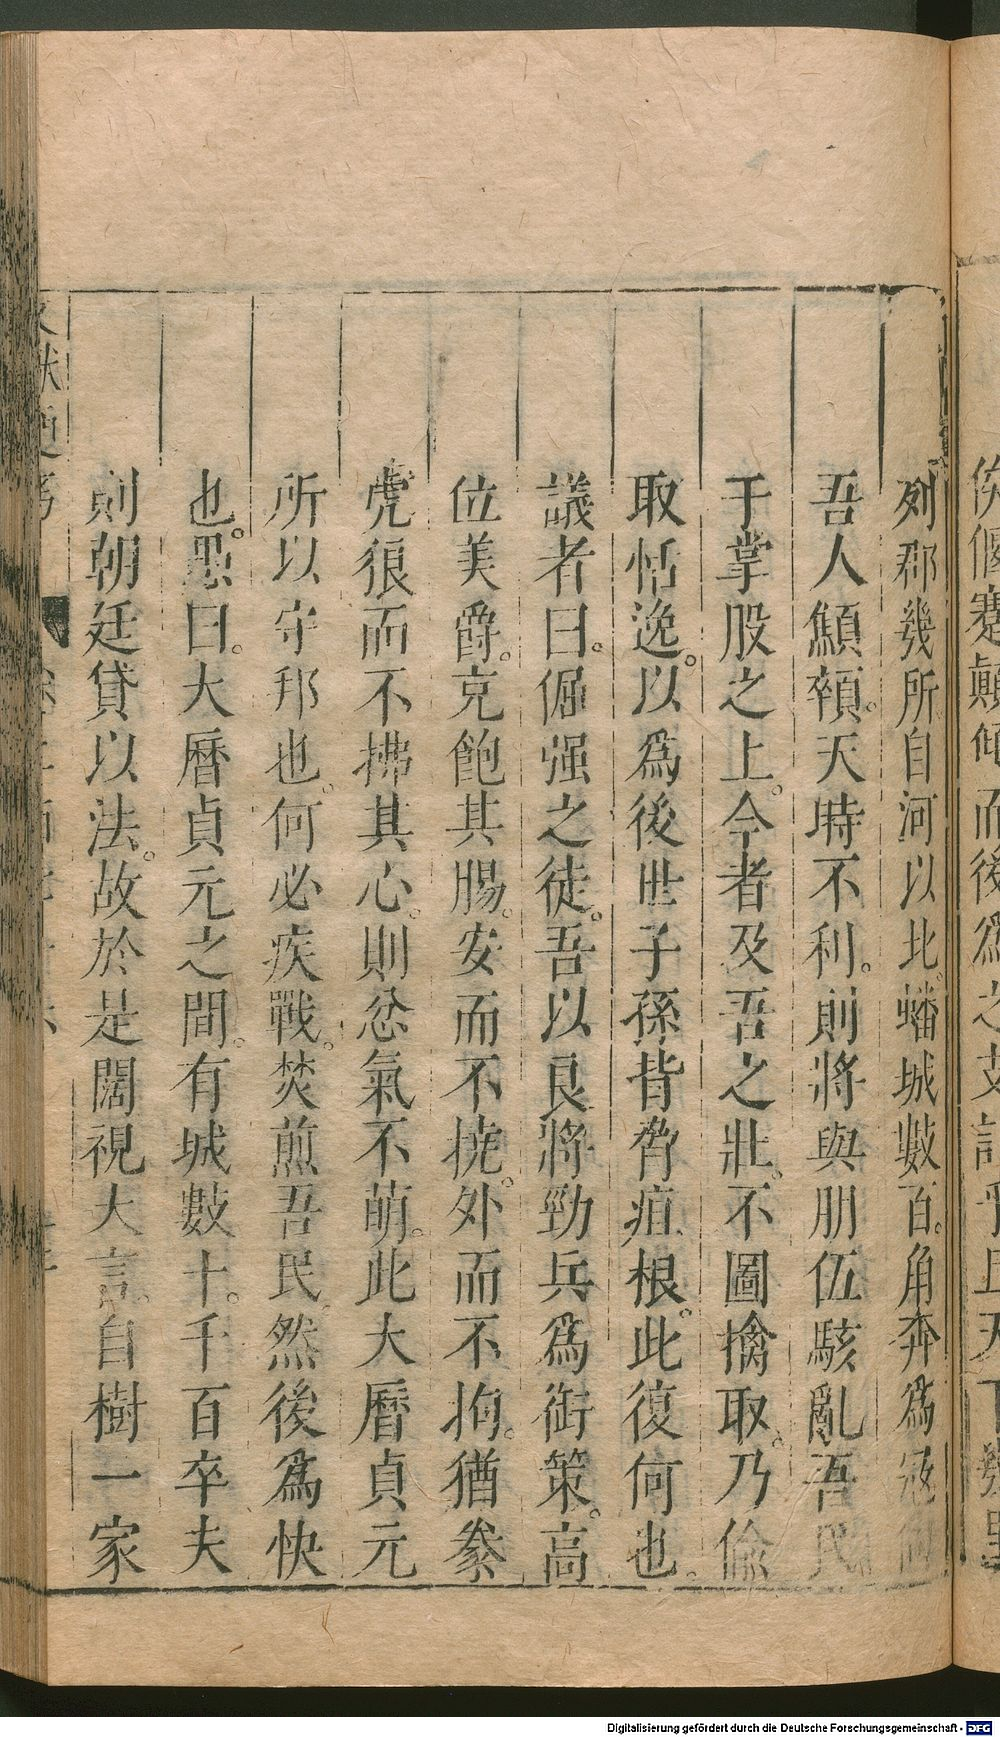 列郡幾所自河以北。蟠城數百。角奔爲寇伺
吾人顦顇。天時不利。則將與朋伍駭亂吾民
于掌股之上。今者及吾之壯。不圖擒取。乃偸
取恬逸。以爲後世子孫背脅疽根。此復何也。
議者曰。倔强之徒。吾以良將勁兵爲銜策。高
位美爵。充飽其腸。安而不撓。外而不拘。猶豢
虎狼而不拂其心。則忿氣不萌。此大曆貞元
所以守邦也。何必疾戰。焚煎吾民。然後爲快
也。愚曰。大曆貞元之間。有城數十。千百卒夫
則朝廷貸以法。故於是闊視大言。自樹一家
Digitalisierung gefördert durch die Deutsche Forschungsgemeinschaft - DFG